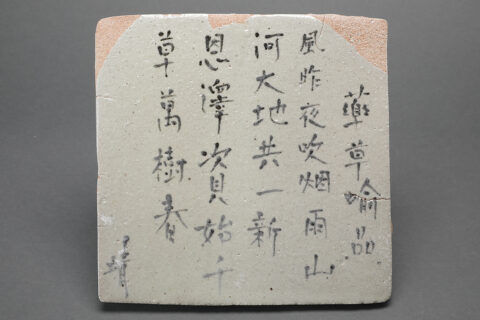 藥草喩品
風昨夜吹烟雨山
河大地共一新
恩澤資始千
草萬樹春